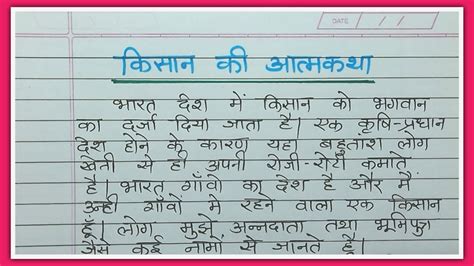 DATE
किसान की आत्मकथा
भारत देश में किसान को भगवान
का दर्जा दिया जाता है। एक कृषि-प्रधान
देश होने के कारण यहा बहुतांश लोग
खेती से ही अपनी रोजी-रोटी कमाते
है। भारत गाँवो का देश है और मैं
उन्ही गांवों मे रहने वाला एक किसान
हूँ। लोग मुझे अन्नदाता तथा भूमिपुत्र
जैसे कई नामों से जानते है।